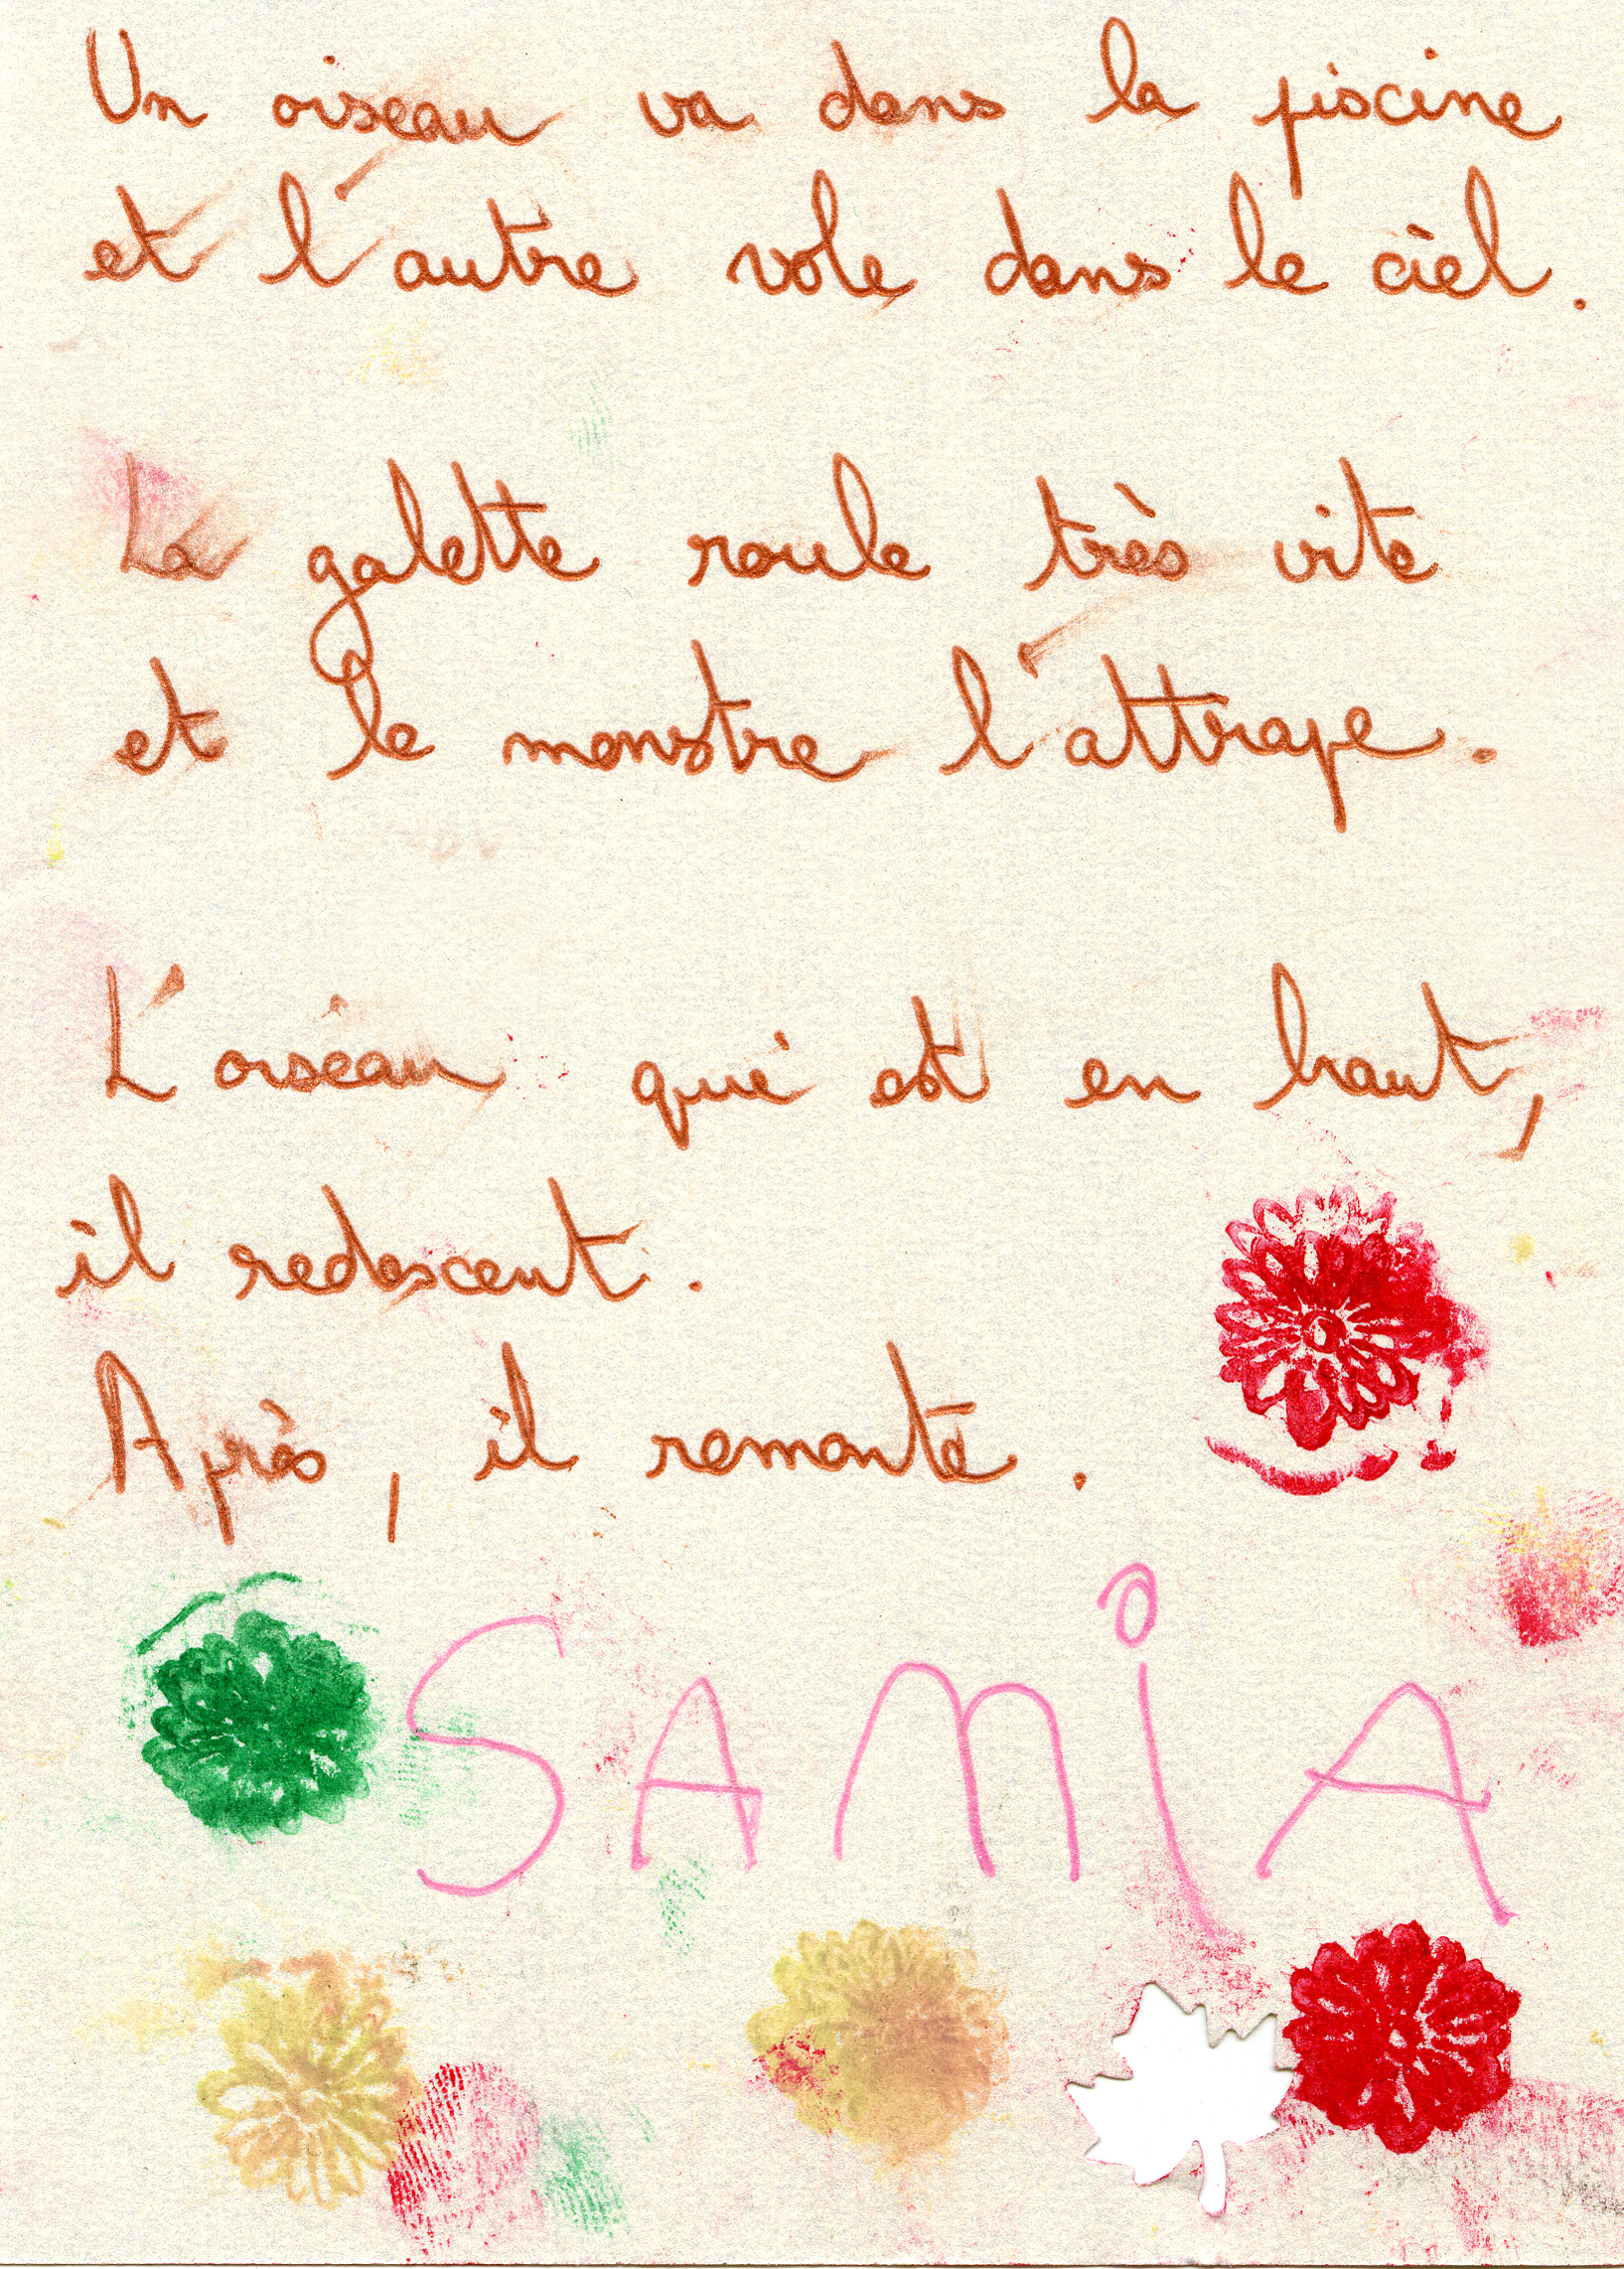 Un oiseau va dans la piscine
et l'autre vole dans le ciel.
La galette roule très vite
et le monstre l'attrape.
L'oiseau qui est en haut,
il redescent.
Après, il remonte.
SAMiA